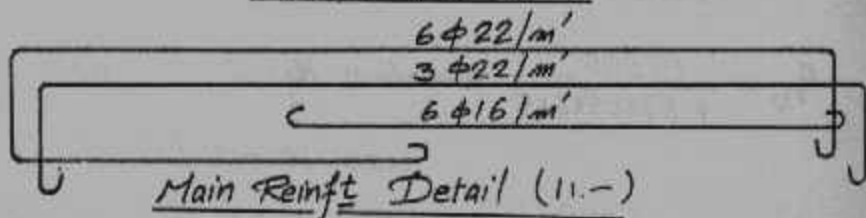 6 ϕ 22/m'
3 ϕ22/m'
6 ϕ16/m'
Main Reinft Detail (11.-)